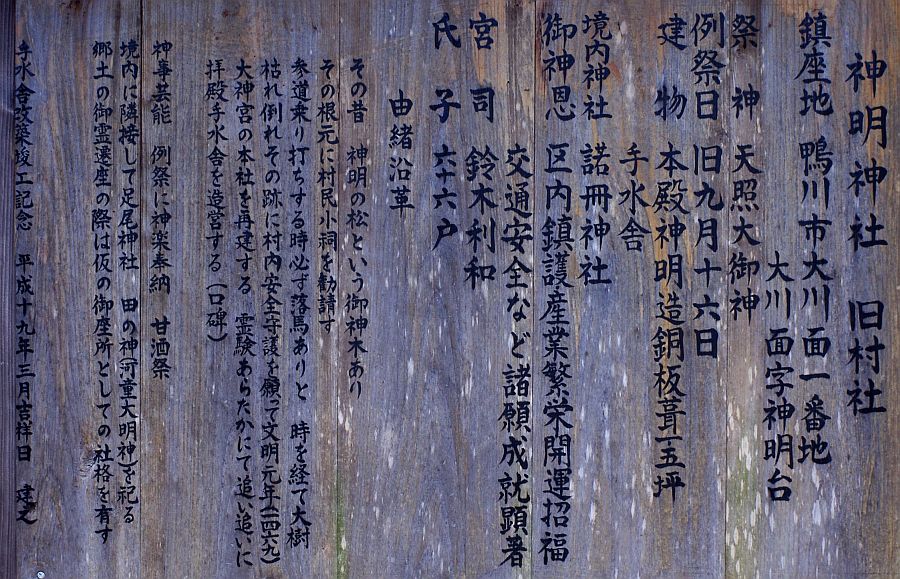 神明神社 旧村社
鎮座地 鴨川市大川面一番地
大川面字神明台
祭神 天照大御神
例祭日 旧九月十六日
建物 本殿神明造銅板葺一五坪
手水舎
境内神社 諾冊神社
御神恩 区内鎮護産業繁栄開運招福
交通安全など諸願成就顕著
宮司 鈴木利和
氏子 六十六戸
由緒沿革
その昔 神明の松という御神木あり
その根元に村民小祠を勧請す
参道乗り打ちする時必ず落馬ありと 時を経て大樹
枯れ倒れその跡に村内安全守護を願って文明元年(一四六九)
大神宮の本社を再建する 霊験あらたかにて追い追いに
拝殿手水舎を造営する(口碑)
神事芸能 例祭に神楽奉納 甘酒祭
境内に隣接して足尾神社 田の神(河童大明神)を祀る
郷土の御霊遷座の際は仮の御座所としての社格を有す
手水舎改築竣工記念 平成十九年三月吉祥日 建之